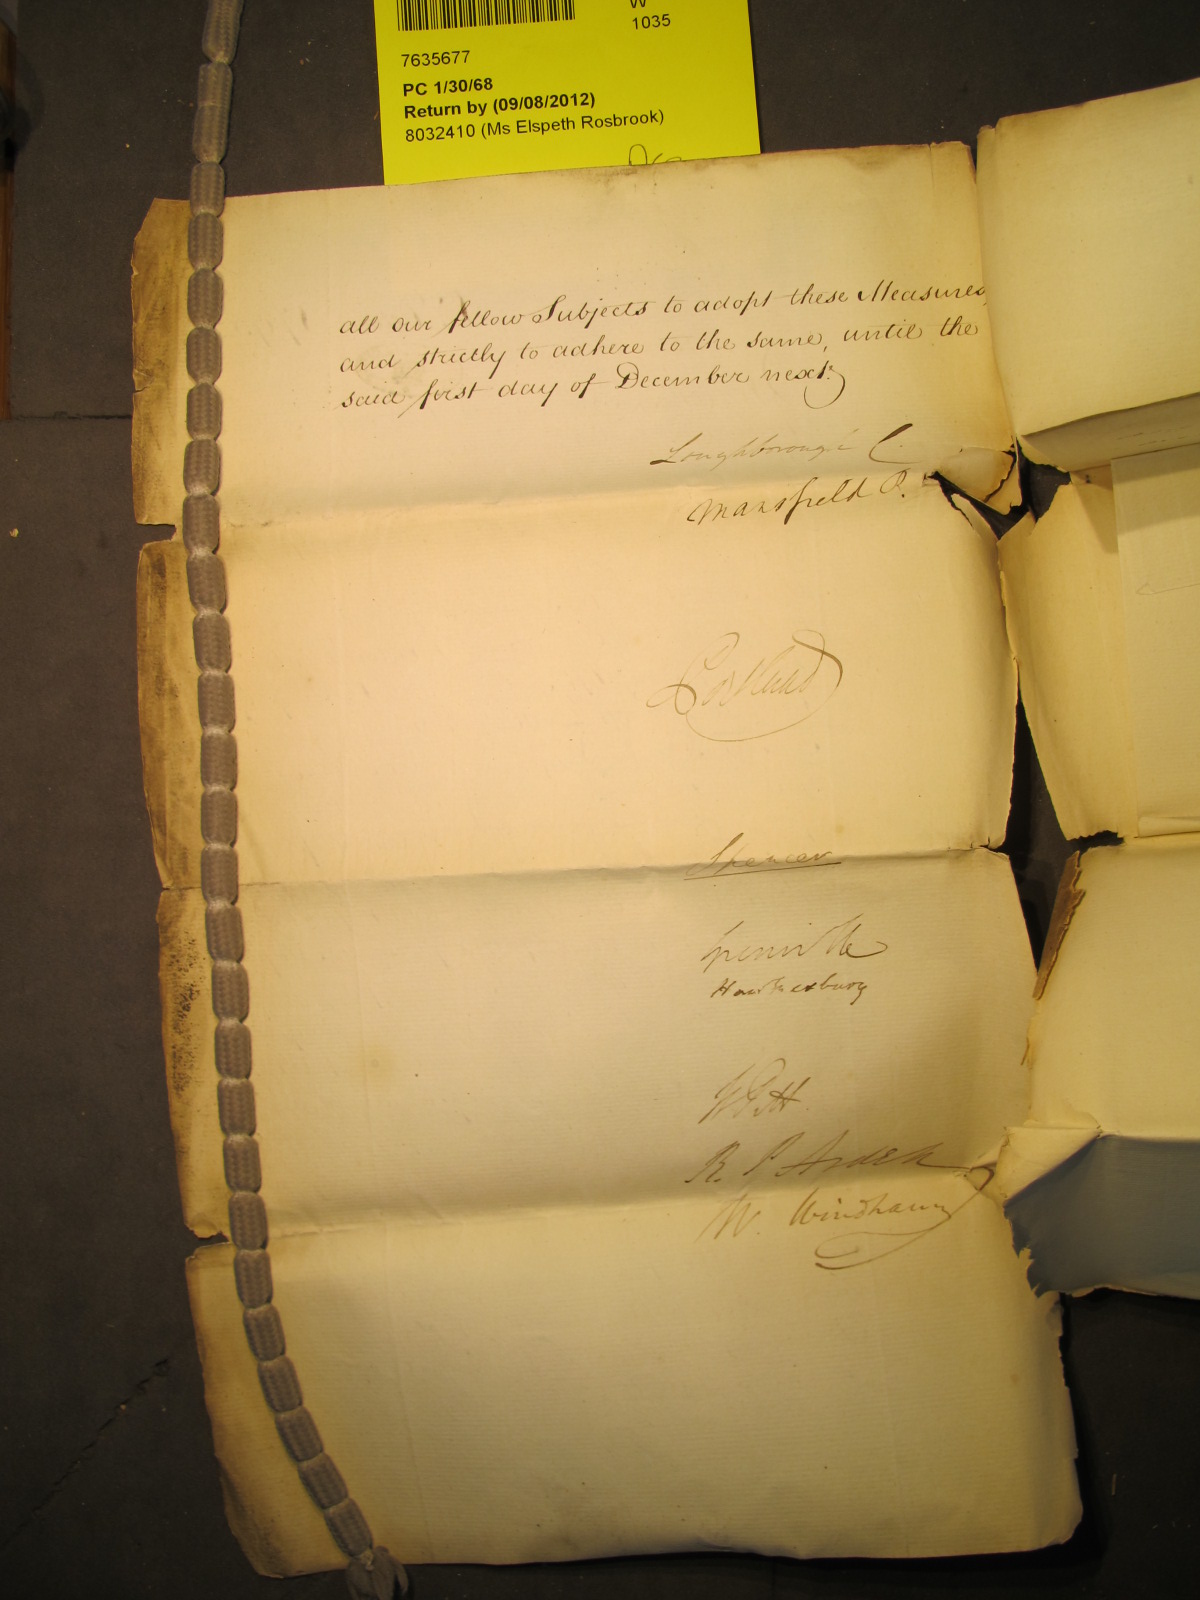 W
1035
7635677
PC 1/30/68
Return by (09/08/2012)
8032410 (Ms Elspeth Rosbrook)
all our fellow Subjects to adopt these Measures,
and strictly to adhere to the same, until the
said first day of December next.
Loughborough C.
Mansfield P.
Portland
Spencer
Grenville
Hawkesbury
W Pitt
R. P. Arden
W. Windham